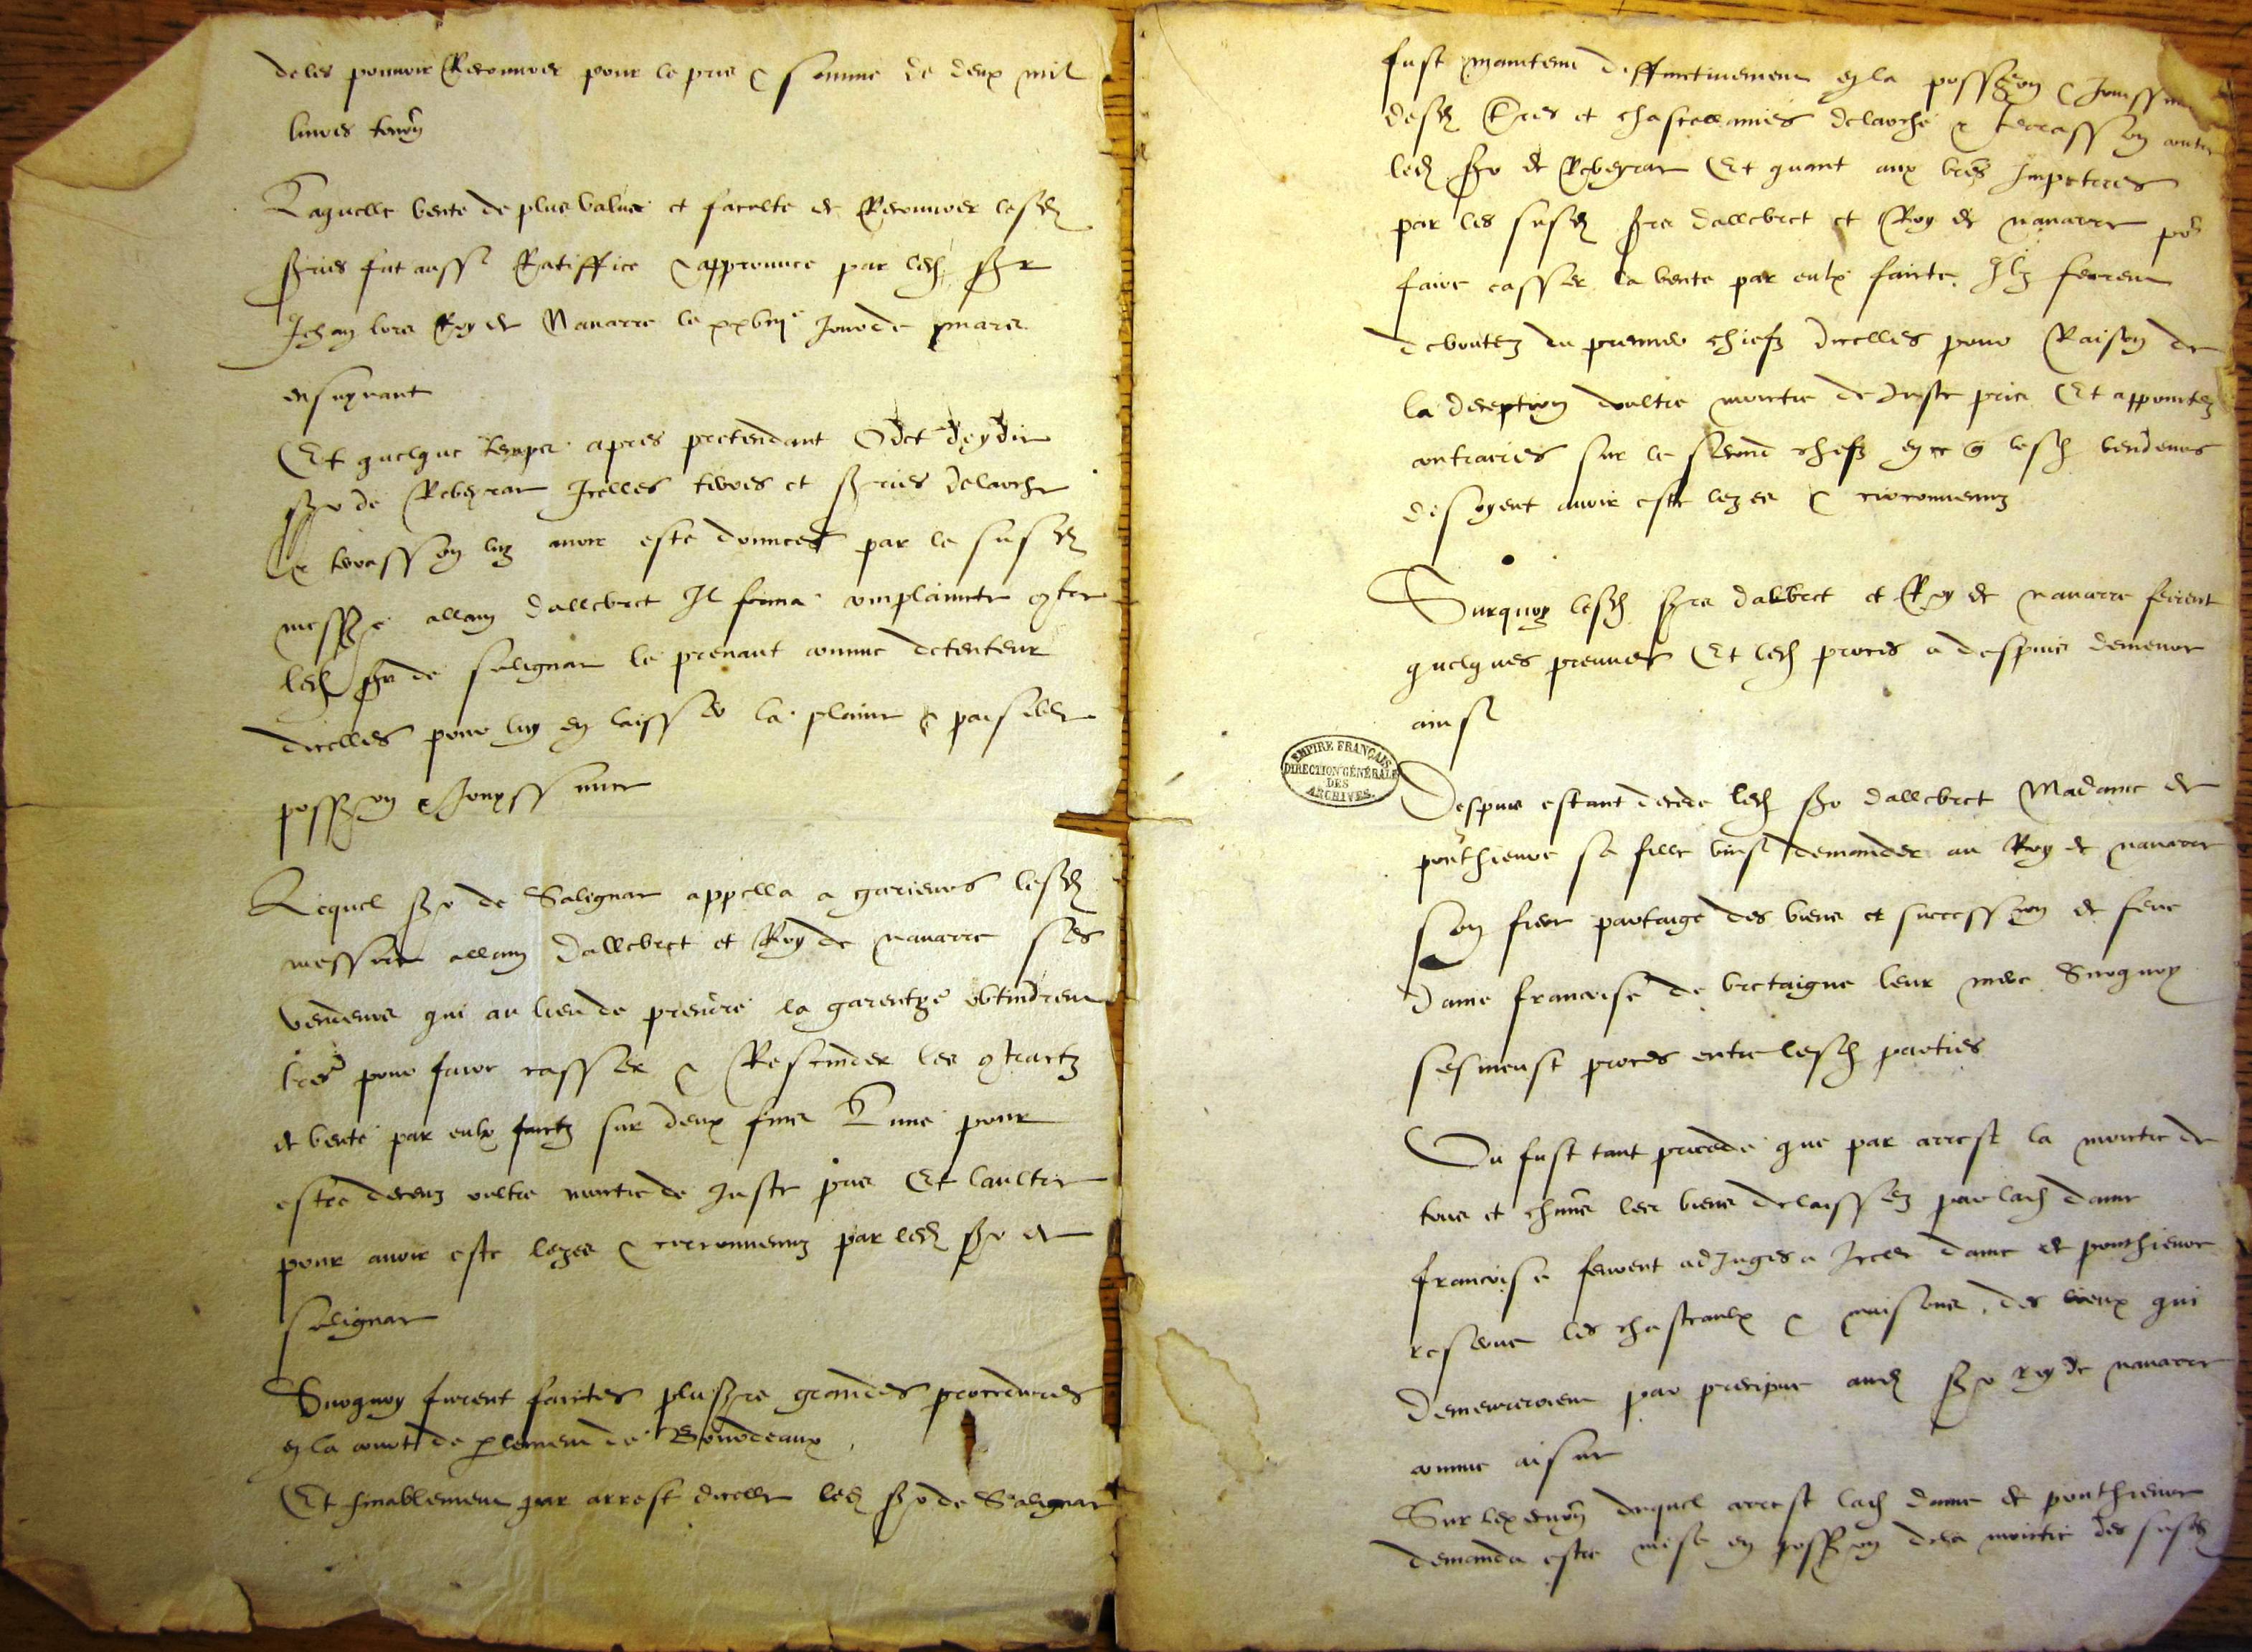 de les pouvoir Recouvrer pour le pris & somme de deux mil
livres tourn
Laquelle vente de plus value et faculte de Recouvrer lesd
sries fut aussi Ratiffiee & approuvee par led sr
Jehan lors Roy de Navarre le xxviije Jour de mars
ensuyvant
Et quelque temps apres pretendant Odet deydie
sr de Rebeyrac Icelles terres et sries delarche
& terrasson luy avoir este donnees par le susd
messe allain dallebret Il forma complaincte contre
led sr de salignac le prenant comme detenteur
dicelles pour luy en laisser la plaine & paisible
possion & Jouyssance
Lequel sr de Salignac appella a garieurs lesd
messire allain dallebret et Roy de navarre ses
vendeurs qui au lieu de prendre la garentye obtindrent
lres pour faire casser & Rescinder les contractz
de vente par eulx faictz sur deux fins Lune pour
estre deceuz oultre moictie de Juste pris Et laultre
pour avoir este lezes & circonvenuz par led sr de
salignac
Surquoy furent faictes plusrs grandes procedures
en la court de parlement de Bourdeaux
Et finablement par arrest dicelle led sr de Salignac
fust maintenu diffinitivement en la possession & Jouissance
desd Tres et chastellanies delarche & terrasson contre
led sr de Rebeyrac Et quant aux lres Impetrees
par les susd srs dallebret et Roy de navarre por
faire casser la vente par eulx faicte Ilz furent
deboutez du premier chiefz dicelles pour Raison de
la deception doultre moictie de Juste pris Et appoinctez
contraires sur le second chefz en ce q lesd vendeurs
disoyent avoir este lezes & circonvenuz
Surquoy lesd srs dalbret et Roy de navarre feirent
quelques preuves Et led proces a despuis demeure
ainsi
EMPIRE FRANÇAIS
DIRECTION GÉNÉRALE
DES
ARCHIVES.
Despuis estant decede led sr dallebret Madame de
ponthievre sa fille vinst demander au Roy de navarre
son frere partaige des biens et succession de feue
dame francoise de bretaigne leur mere Surquoy
sesmeust proces entre lesd parties
Ou fust tant procede que par arrest la moictie de
tous et chuns les biens delaissez par lad dame
francoise feurent adJuges a Icelle dame de ponthievre
reserve les chasteaulx & maisons des lieux qui
demeureroient par precipu aud sr roy de navarre
comme aisne
Sur lexecuon duquel arrest lad dame de ponthievre
demanda estre mise en possion dela moictie des susd